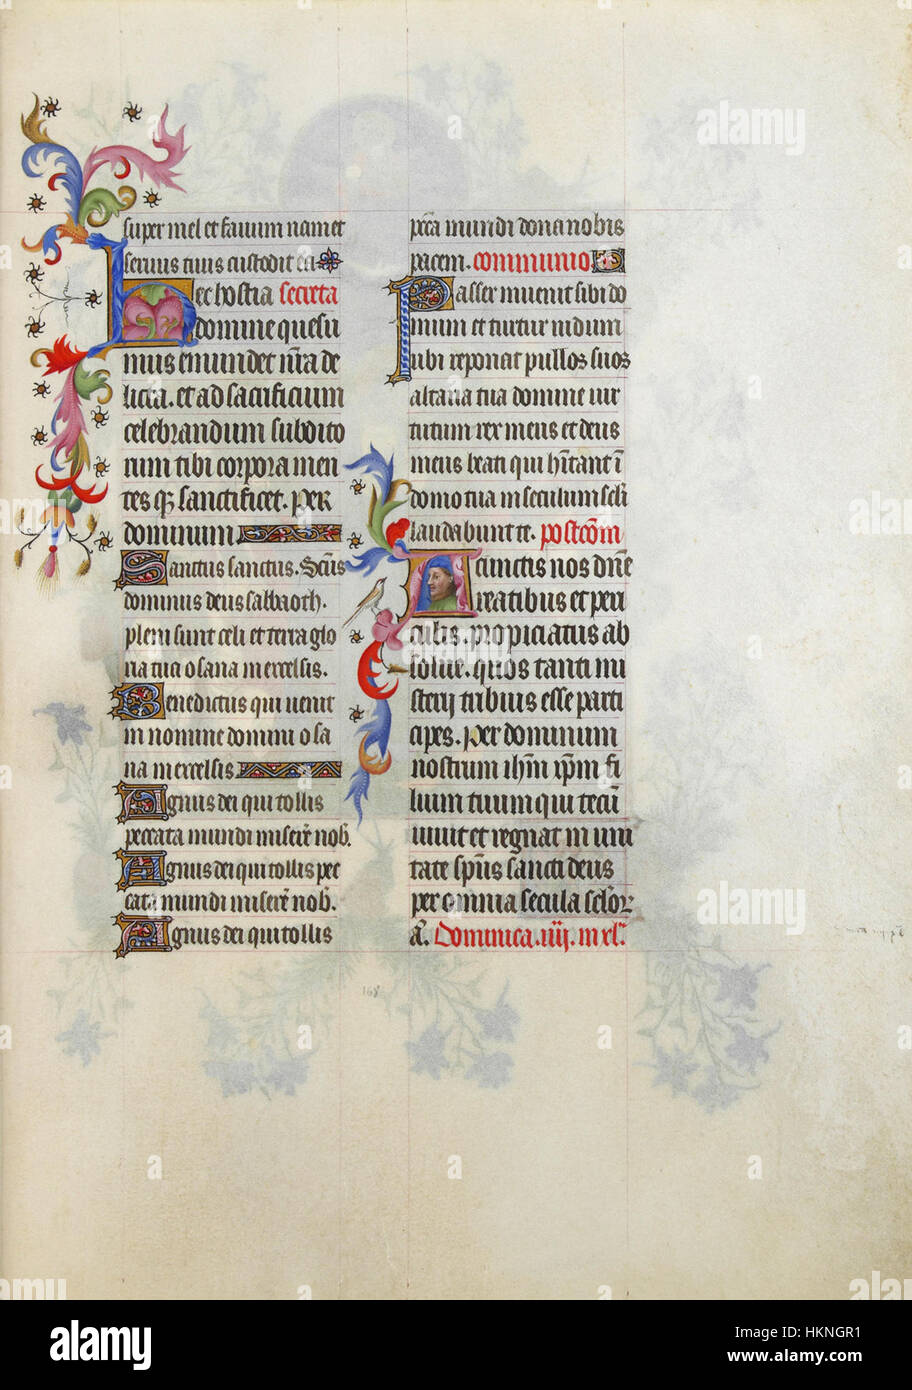 super mel et fauum nam et
seruus tuus custodit ea
hec hostia secreta
domine quesu
mus emundet nr̄a de
licta. et ad sacrificium
celebrandum subdito
rum tibi corpora men
tes qȝ sanctificet. Per
dominum
Sanctus sanctus. Scūs
dominus deus sabaoth.
pleni sunt celi et terra glo
ria tua osana in excelsis.
Benedictus qui uenit
in nomine domini osa
na in excelsis
Agnus dei qui tollis
peccata mundi miserē nob̄.
Agnus dei qui tollis pec
cata mundi miserē nob̄.
Agnus dei qui tollis
pcc̄a mundi dona nobis
pacem. communio
Passer inuenit sibi do
mum et turtur nidum
ubi reponat pullos suos
altaria tua domine uir
tutum rex meus et deus
meus beati qui hītant ī
domo tua in seculum scl̄i
laudabunt te. postcōm
A cunctis nos dn̄e
reatibus et peri
culis. propiciatus ab
solue. quos tanti mi
sterij tribuis esse parti
cipes. Per dominum
nostrum ih̄m xp̄m fi
lium tuum qui tecū
uiuit et regnat in uni
tate sp̄us sancti deus
per omnia secula sclor̄
a. Dominica .iiij. in xl.
168
alamy
a
alamy
Image ID: HKNGR1
www.alamy.com